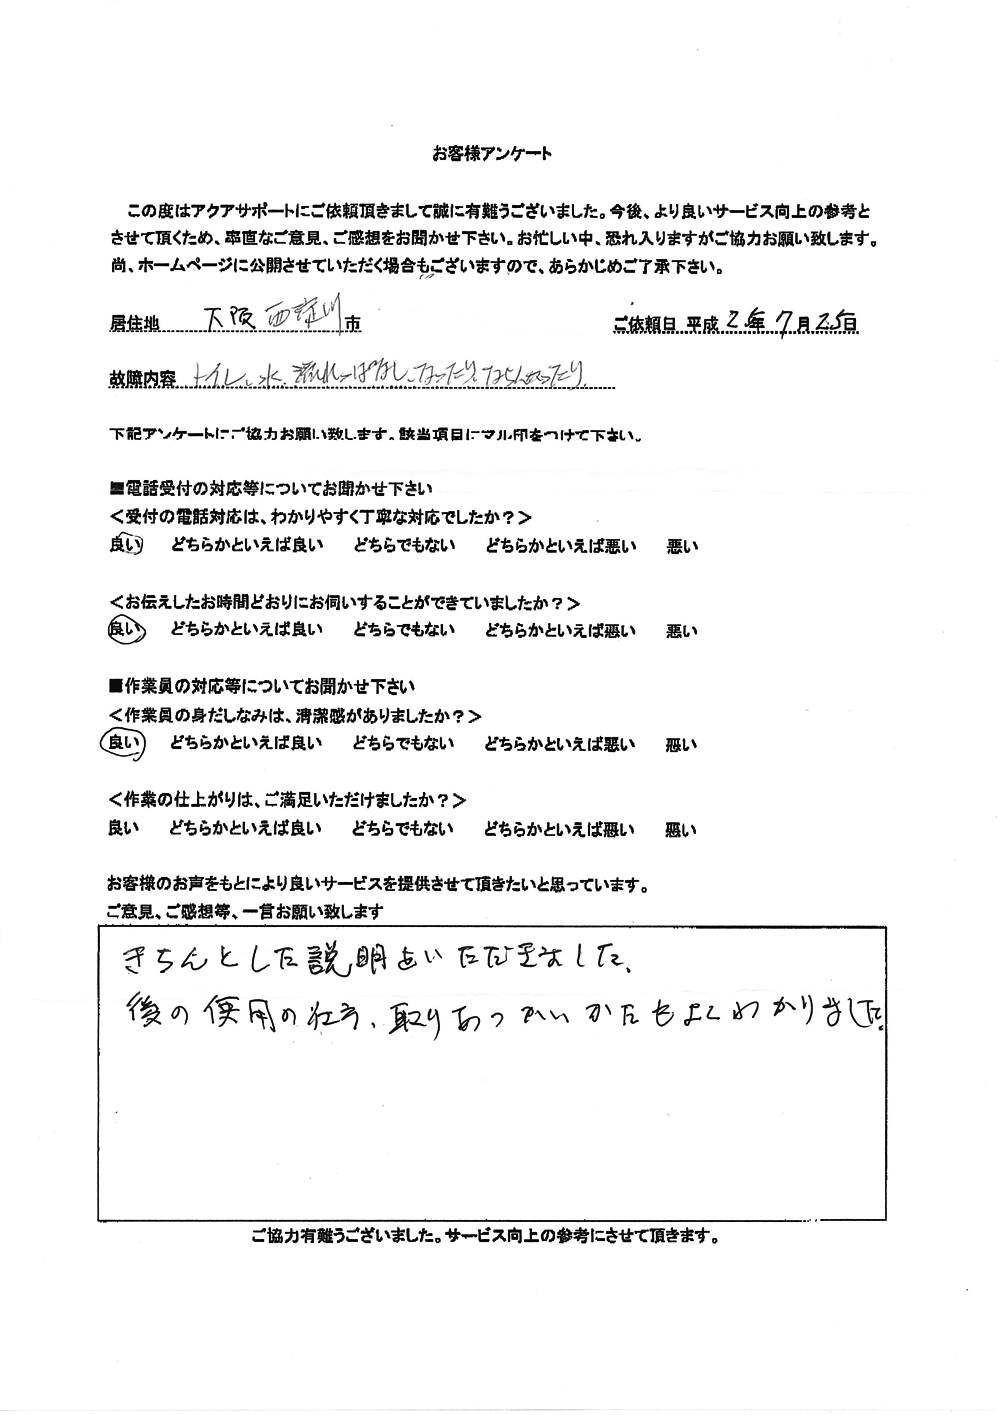 お客様アンケート
この度はアクアサポートにご依頼頂きまして誠に有難うございました。今後、より良いサービス向上の参考と
させて頂くため、率直なご意見、ご感想をお聞かせ下さい。お忙しい中、恐れ入りますがご協力お願い致します。
尚、ホームページに公開させていただく場合もございますので、あらかじめご了承下さい。
居住地 大阪 西淀川 市 ご依頼日 平成 25年 7月 25日
故障内容 トイレ、水、流れっぱなしになったり、ならんかったり
下記アンケートにご協力お願い致します。該当項目にマル印をつけて下さい。
■電話受付の対応等についてお聞かせ下さい
＜受付の電話対応は、わかりやすく丁寧な対応でしたか？＞
良い どちらかといえば良い どちらでもない どちらかといえば悪い 悪い
＜お伝えしたお時間どおりにお伺いすることができていましたか？＞
良い どちらかといえば良い どちらでもない どちらかといえば悪い 悪い
■作業員の対応等についてお聞かせ下さい
＜作業員の身だしなみは、清潔感がありましたか？＞
良い どちらかといえば良い どちらでもない どちらかといえば悪い 悪い
＜作業の仕上がりは、ご満足いただけましたか？＞
良い どちらかといえば良い どちらでもない どちらかといえば悪い 悪い
お客様のお声をもとにより良いサービスを提供させて頂きたいと思っています。
ご意見、ご感想等、一言お願い致します
きちんとした説明をいただきました、
後の使用の仕方、取りあつかいかたもよくわかりました。
ご協力有難うございました。サービス向上の参考にさせて頂きます。